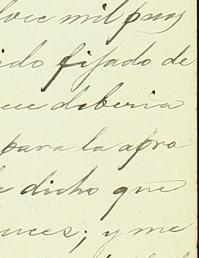 doce mil pesos
ido fijado de
que deberia
para la apro
e dicho que
unces; y me